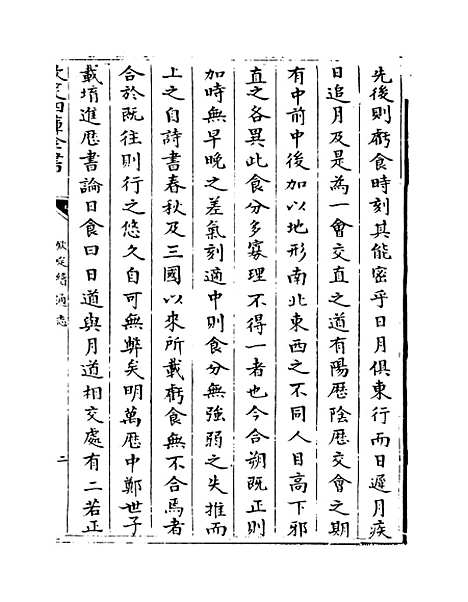 先後則虧食時刻其能密乎日月俱東行而日遲月疾
日追月及是為一會交直之道有陽厯陰厯交會之期
有中前中後加以地形南北東西之不同人目高下邪
直之各異此食分多寡理不得一者也今合朔既正則
加時無早晚之差氣刻適中則食分無強弱之失推而
上之自詩書春秋及三國以來所載虧食無不合焉者
合於既往則行之悠久自可無弊矣明萬厯中鄭世子
載堉進厯書論日食曰日道與月道相交處有二若正
欽定四庫全書
欽定續通志
二